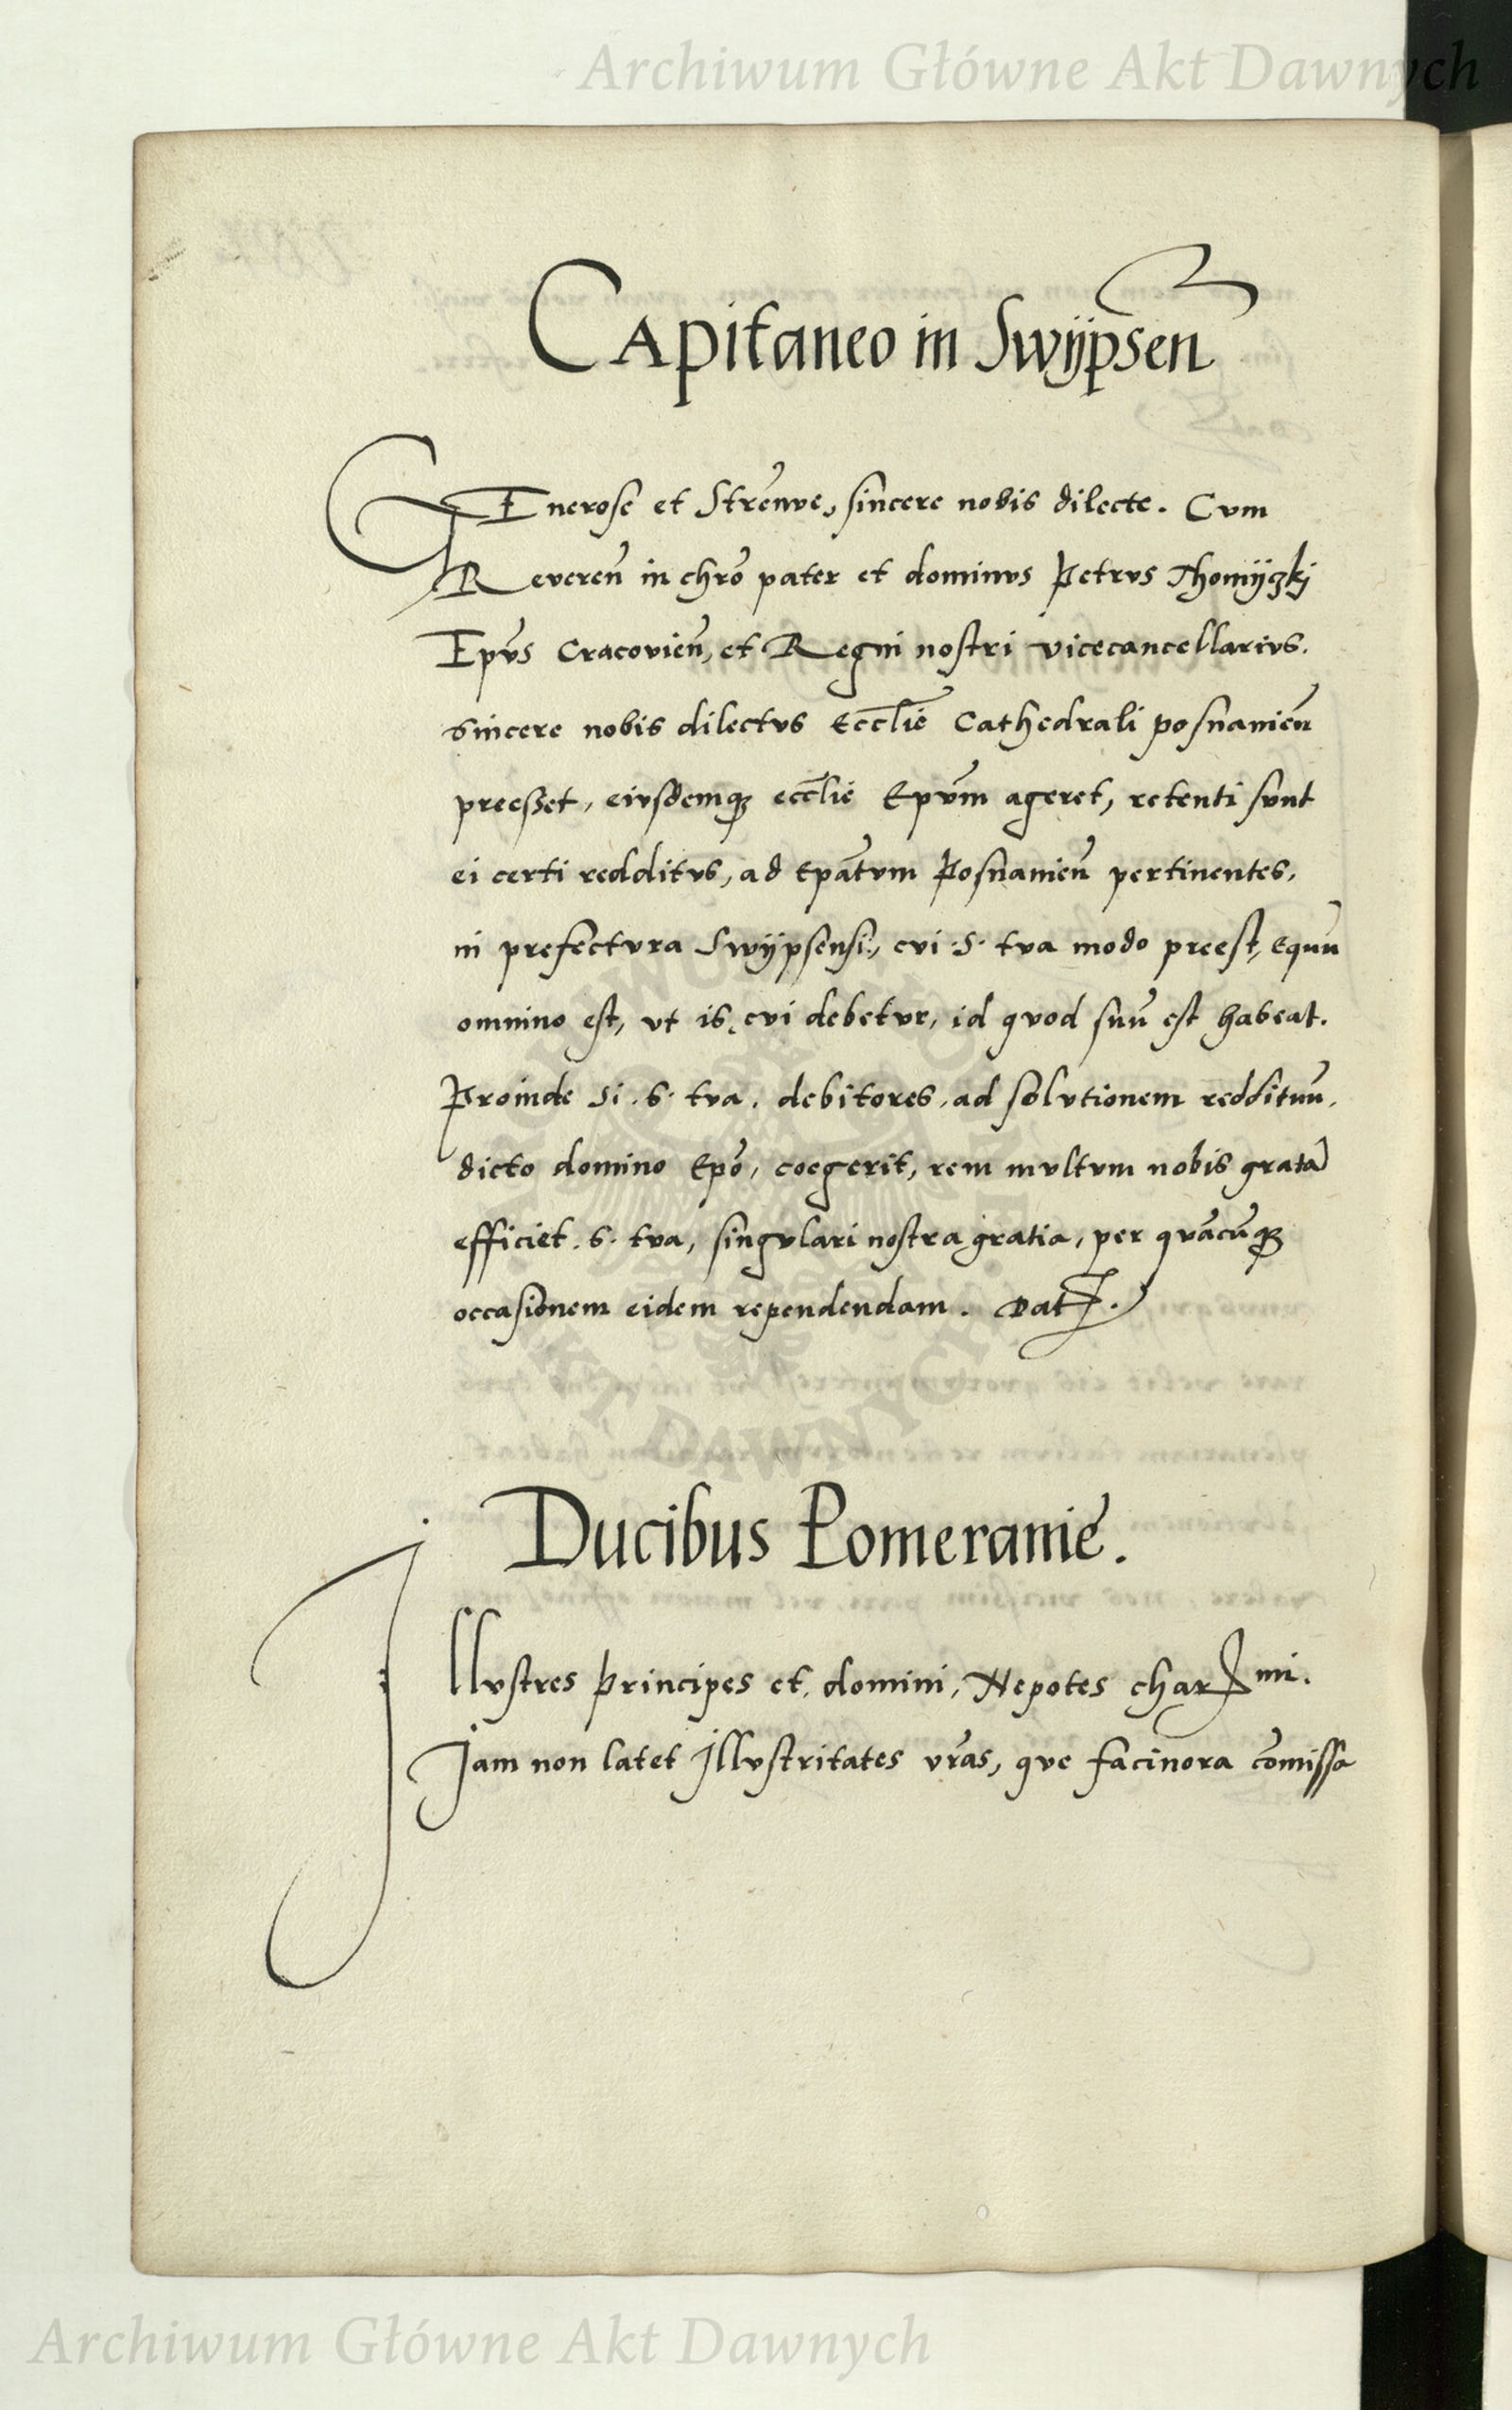 Archiwum Główne Akt Dawnych
Capitaneo in Swijpsen̄
GEnerose et Strēnve, sincere nobis dilecte. Cvm
Reveren̄ in chr̄o pater et dominvs Petrvs Thomijczkj
Ep̄vs Cracovien̄, et Regni nostri vicecancellarivs.
sincere nobis dilectvs Eccl̄ie Cathedrali posnanien̄
preesset, eivsdemqꝫ eccl̄ie Ep̄vm ageret, retenti svnt
ei certi redditvs, ad Ep̄atvm Posnanien̄ pertinentes,
in prefectvra Swijpsensi, cvi .S. tva modo preest, Equū
omnino est, vt is, cvi debetvr, id qvod suū est habeat.
Proinde si .s. tva. debitores, ad solvtionem reddituū,
dicto domino Ep̄o, coegerit, rem mvltvm nobis gratā
efficiet .s. tva, singvlari nostra gratia, per qvācūqꝫ
occasionem eidem rependendam. Dat.
AKT DAWNYCH
Ducibus Pomeranie.
Jllvstres principes et domini, Nepotes charmi.
Jam non latet Jllvstritates vr̄as, qve facinora cōmissa
Archiwum Główne Akt Dawnych